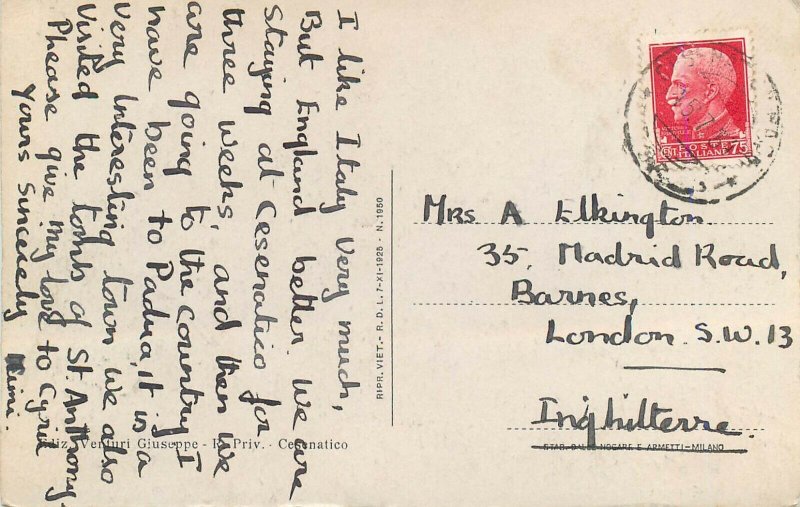 I like Italy very much,
But England better. We are
staying at Cesenatico for
three weeks, and then we
are going to the country I
have been to Padua, it is a
very Interesting town we also
visited the tomb of St. Anthony.
Please give my love to Cyril
Yours Sincerely
Mimi.
Ediz. Venturi Giuseppe - R. Priv. - Cesenatico
RIPR. VIET. - R. D. L. 7-XI-1925 - N. 1950
CENT. POSTE 75
ITALIANE
Mrs A Elkington.
35, Madrid Road,
Barnes,
London. S.W.13
Inghilterre.
STAB. DALLE NOGARE E ARMETTI - MILANO